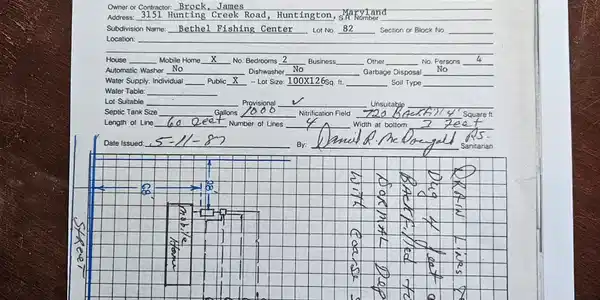 Owner or Contractor: Brock, James
Address: 3151 Hunting Creek Road, Huntington, Maryland S.R. Number
Subdivision Name: Bethel Fishing Center Lot No. 82 Section or Block No.
Location:
House Mobile Home X No. Bedrooms 2 Business Other No. Persons 4
Automatic Washer No Dishwasher No Garbage Disposal No
Water Supply: Individual Public X - Lot Size: 100X126 sq. ft. Soil Type
Water Table:
Lot Suitable Provisional ✓ Unsuitable
Septic Tank Size Gallons 1000 Nitrification Field 720 BACKFill 4' Square ft
Length of Line 60 feet Number of Lines 4 Width at bottom 3 feet
Date Issued 5-11-87 By: Daniel R. McDougald RS- Sanitarian
68'
28'
STREET
Mobile Home
DRAIN Lines
Dig 4 feet
BACKFilled
NORMAL Dep
with Coarse